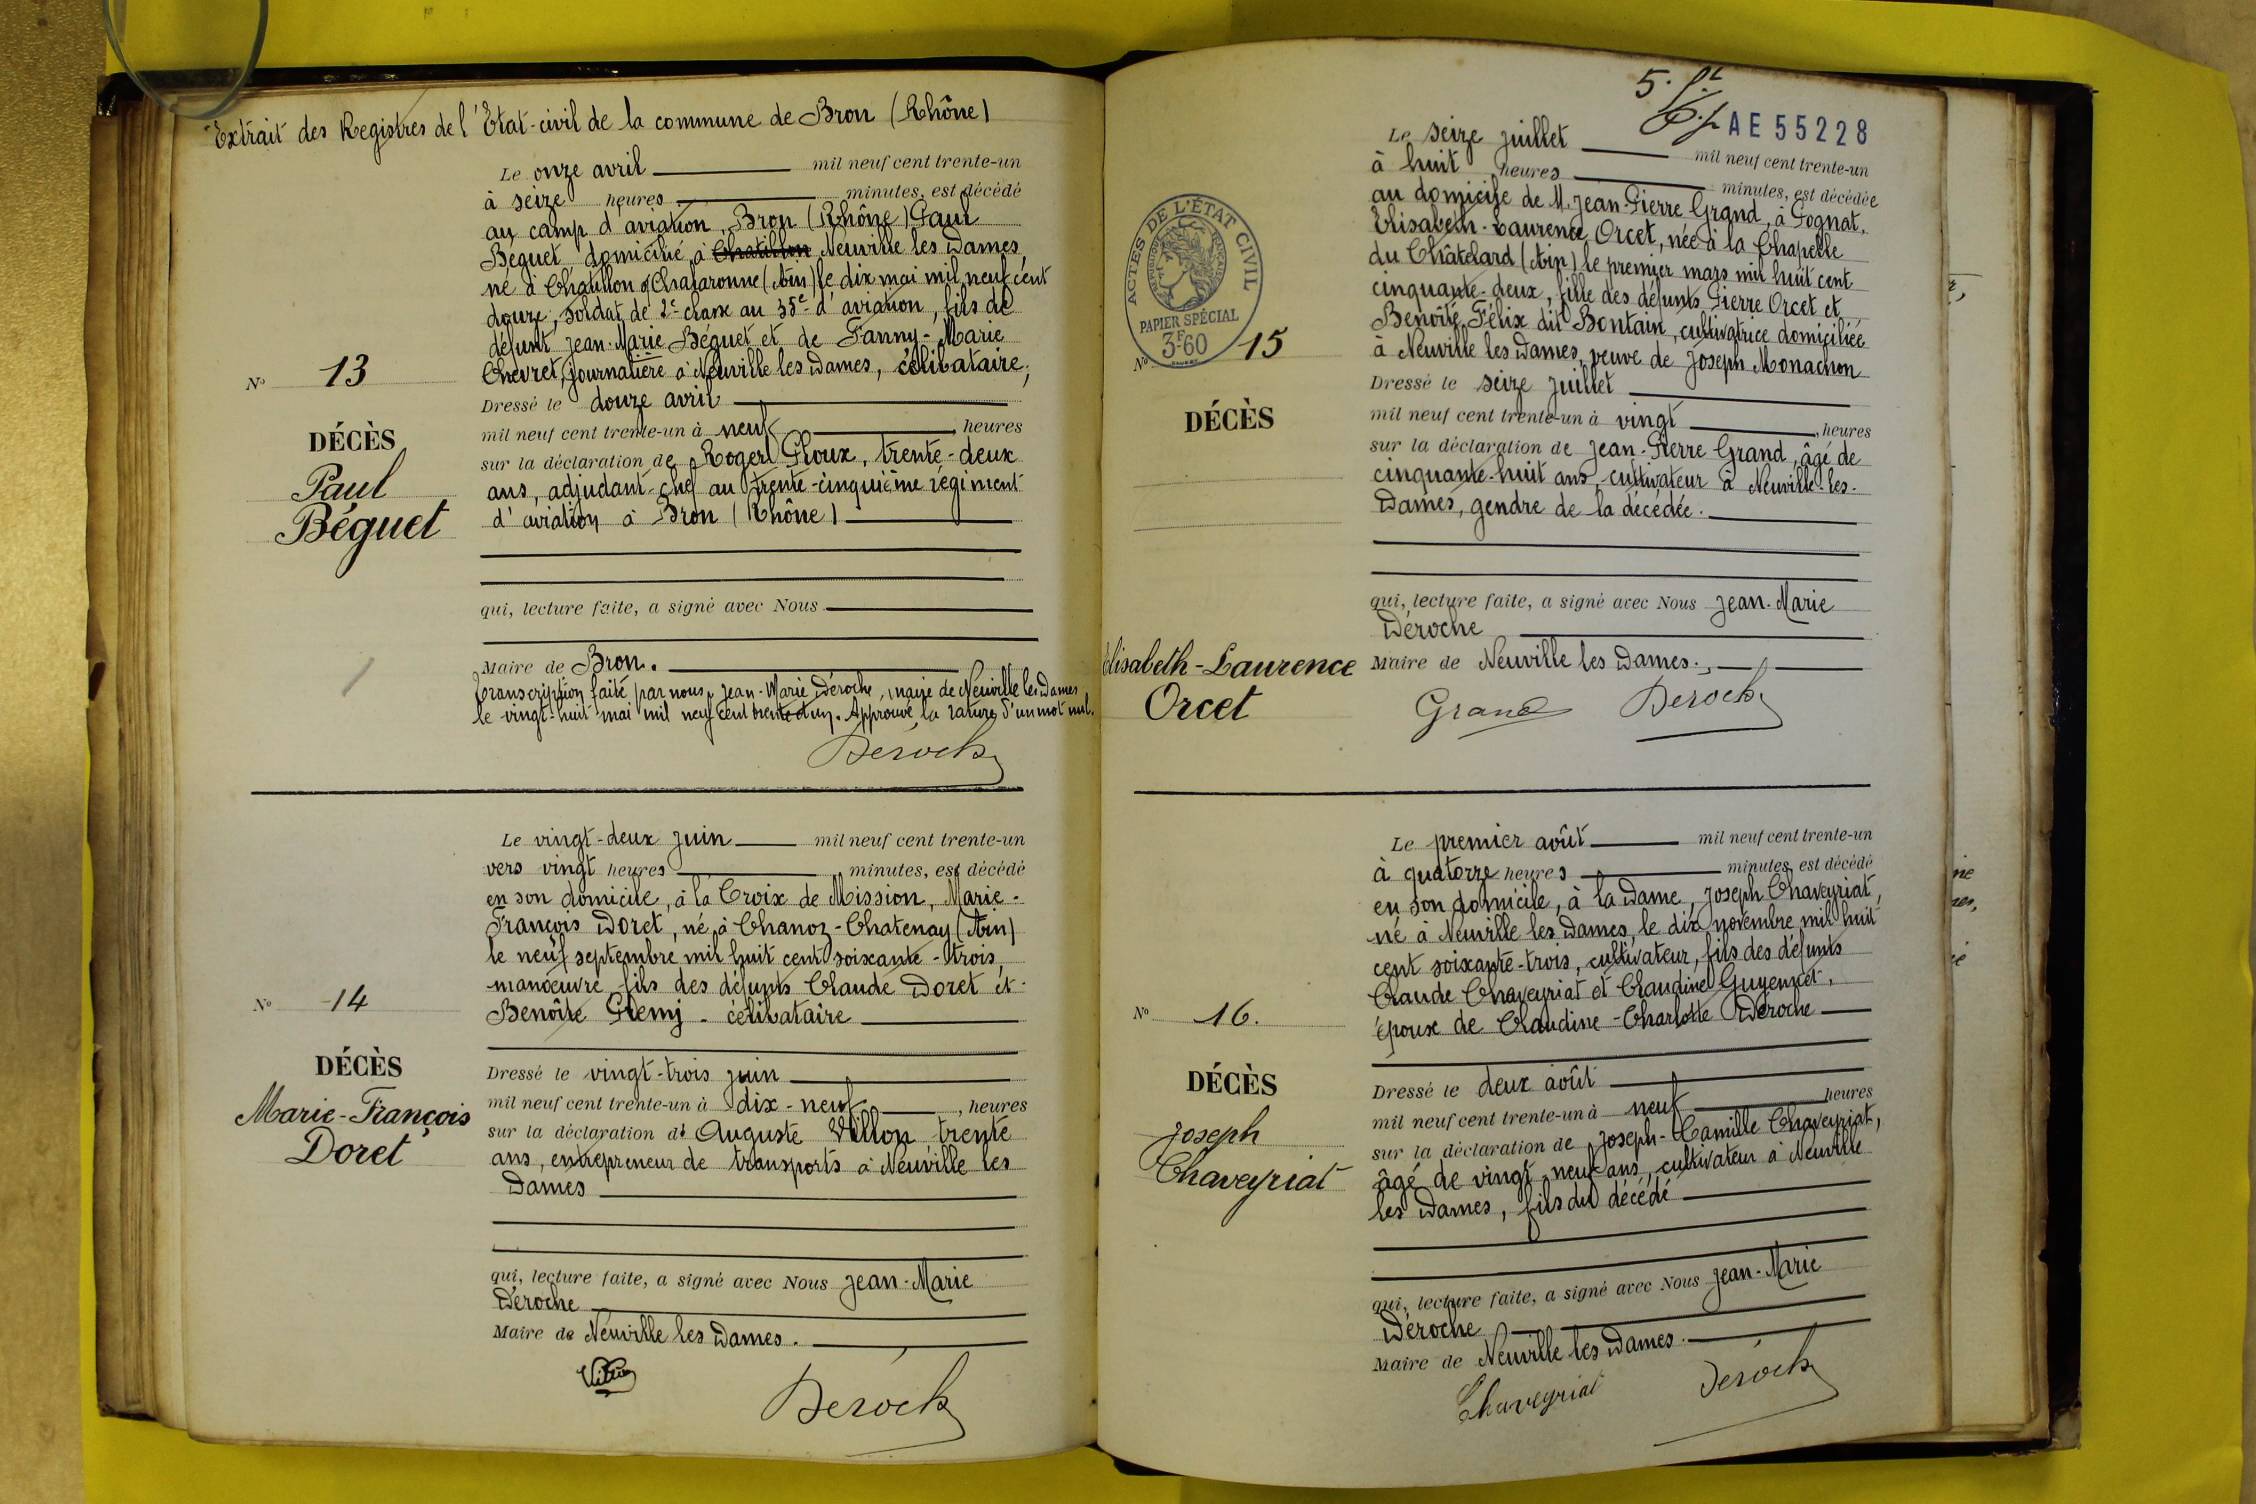 Extrait des Registres de l'Etat-civil de la commune de Bron (Rhône)
Le onze avril mil neuf cent trente-un
à seize heures minutes, est décédé
au camp d'aviation, Bron (Rhône) Paul
Béguet domicilié à Chatillon Neuville les Dames,
né à Chatillon s/Chalaronne (Ain) le dix mai mil neuf cent
douze, soldat de 2e classe au 35e d'aviation, fils de
défunt Jean-Marie Béguet et de Fanny-Marie
Chevret, journalière à Neuville les Dames, célibataire;
Dressé le douze avril
mil neuf cent trente-un à neuf heures
sur la déclaration de Roger Ploux, trente-deux
ans, adjudant-chef au trente-cinquième régiment
d'aviation à Bron (Rhône)
qui, lecture faite, a signé avec Nous
Maire de Bron.
Transcription faite par nous, Jean-Marie Déroche, maire de Neuville les Dames
le vingt-huit mai mil neuf cent trente et un. Approuvé la rature d'un mot nul.
Déroche
No 13
DÉCÈS
Paul
Béguet
Le vingt-deux juin mil neuf cent trente-un
vers vingt heures minutes, est décédé
en son domicile, à la Croix de Mission, Marie-
François Doret, né à Chanoz-Chatenay (Ain)
le neuf septembre mil huit cent soixante-trois,
manœuvre, fils des défunts Claude Doret et
Benoîte - célibataire
Dressé le vingt-trois juin
mil neuf cent trente-un à dix-neuf, heures
sur la déclaration de Auguste trente
ans, entrepreneur de transports à Neuville les
Dames
qui, lecture faite, a signé avec Nous Jean-Marie
Déroche
Maire de Neuville les Dames.
Déroche
No 14
DÉCÈS
Marie-François
Doret
5. f.
AE 55228
Le seize juillet mil neuf cent trente-un
à huit heures minutes, est décédée
au domicile de M. Jean-Pierre Grand, à Pognat,
Elisabeth-Laurence Orcet, née à la Chapelle
du Châtelard (Ain) le premier mars mil huit cent
cinquante-deux, fille des défunts Pierre Orcet et
Benoîte Félix dit Bontain, cultivatrice domiciliée
à Neuville les Dames, veuve de Joseph Monachon
Dressé le seize juillet
mil neuf cent trente-un à vingt, heures
sur la déclaration de Jean-Pierre Grand, âgé de
cinquante-huit ans, cultivateur à Neuville-les-
Dames, gendre de la décédée.
qui, lecture faite, a signé avec Nous Jean-Marie
Déroche
Maire de Neuville les Dames.
Grand Déroche
ACTES DE L'ÉTAT CIVIL
RÉPUBLIQUE FRANÇAISE
PAPIER SPÉCIAL
3F60
No 15
DÉCÈS
Elisabeth-Laurence
Orcet
Le premier août mil neuf cent trente-un
à quatorze heures minutes, est décédé
en son domicile, à la Dame, Joseph Chaveyriat,
né à Neuville les Dames, le dix novembre mil huit
cent soixante-trois, cultivateur, fils des défunts
Claude Chaveyriat et Claudine Guyennet,
époux de Claudine-Charlotte Déroche
Dressé le deux août
mil neuf cent trente-un à neuf heures
sur la déclaration de Joseph-Camille Chaveyriat,
âgé de vingt neuf ans, cultivateur à Neuville
les Dames, fils du décédé
qui, lecture faite, a signé avec Nous Jean-Marie
Déroche
Maire de Neuville les Dames.
Chaveyriat Déroche
No 16.
DÉCÈS
Joseph
Chaveyriat